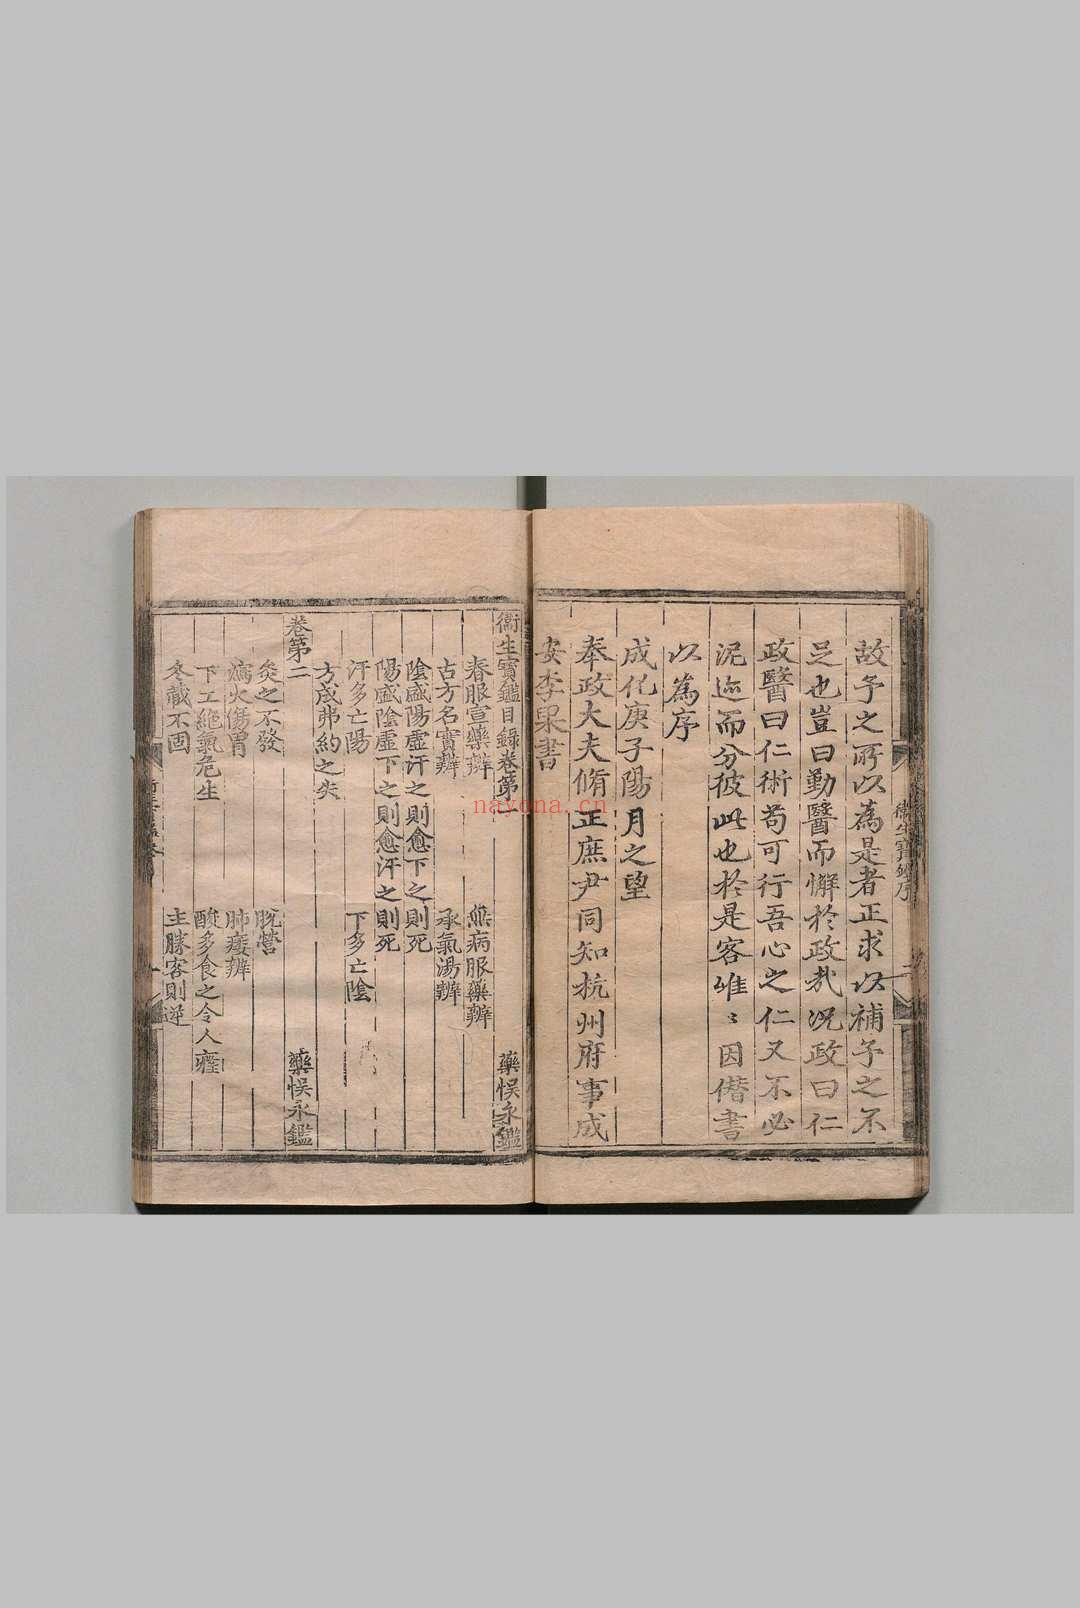 故予之所以為是者正求以補予之不
足也豈曰勤醫而懈於政哉況政曰仁
政醫曰仁術苟可行吾心之仁又不必
泥迹而分彼此也於是客唯〻因僣書
以為序
成化庚子陽月之望
奉政大夫脩正庶尹同知杭州府事成
安李果書
衛生寶鑑序
衞生寶鑑目錄卷第一 藥悮永鑑
春服宣藥辨 無病服藥辨
古方名實辨 承氣湯辨
陰盛陽虛汗之則愈下之則死
陽盛陰虛下之則愈汗之則死
汗多亡陽 下多亡陰
方成弗約之失
卷第二 藥悮永鑑
灸之不發 脫營
火傷胃 肺痿辨
下工絕氣危生 酸多食之令人癃
冬藏不固 主勝客則逆
nayona.cn